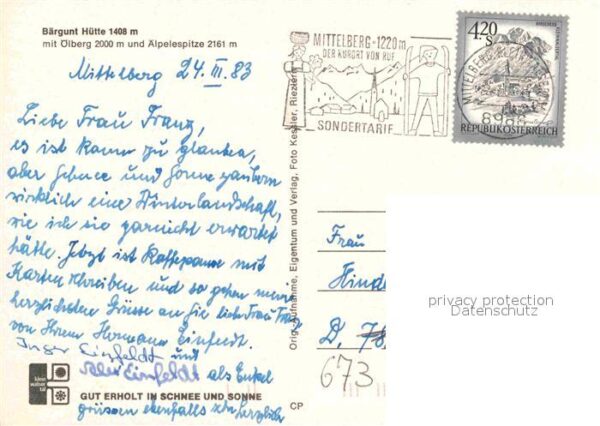 Bärgunt Hütte 1408 m
mit Ölberg 2000 m und Älpelespitze 2161 m
Mittelberg 24. III. 83
Liebe Frau Franz,
es ist kaum zu glauben,
aber Schnee und Sonne zaubern
wirklich eine Winterlandschaft,
wie ich sie garnicht erwartet
hätte. Jetzt ist Kaffepause mit
Karten schreiben und so gehen meine
herzlichsten Grüsse an Sie liebe Frau Franz
von Ihrem Hermann Einfeldt.
Inger Einfeldt und
Alex Einfeldt als Enkel
GUT ERHOLT IN SCHNEE UND SONNE
grüssen ebenfalls sehr herzlich
CP
Orig.-Aufnahme, Eigentum und Verlag, Foto Kessler, Riezlern
MITTELBERG · 1220 m
DER KURORT VON RUF
SONDERTARIF
4.20
S
REPUBLIK ÖSTERREICH
MITTELBERG
Frau
Hinde
D.
673
privacy protection
Datenschutz